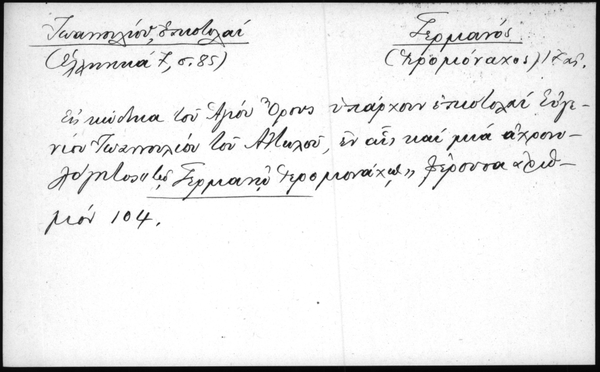 Ἰωαννουλίου, ἐπιστολαί
(Ἑλληνικά 7, σ. 85)
Γερμανός
(Ἱερομόναχος) 17 αἰ.
Εἰς κώδικα τοῦ Ἁγίου Ὄρους ὑπάρχουν ἐπιστολαί Εὐγε-
νίου Ἰωαννουλίου τοῦ Αἰτωλοῦ, ἐν αἷς καί μιά ἀχρονο-
λόγητος "τῷ Γερμανῷ Ἱερομονάχῳ", φέρουσα ἀριθ-
μόν 104.